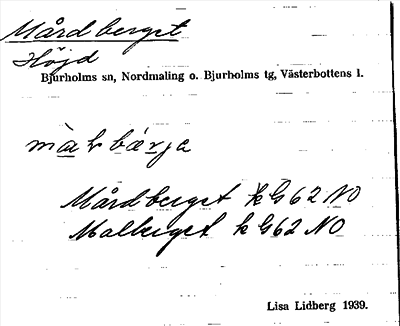 Mårdberget
Höjd
Bjurholms sn, Nordmaling o. Bjurholms tg, Västerbottens l.
Mårdberget k G62 NO
Malberget k G62 NO
Lisa Lidberg 1939.